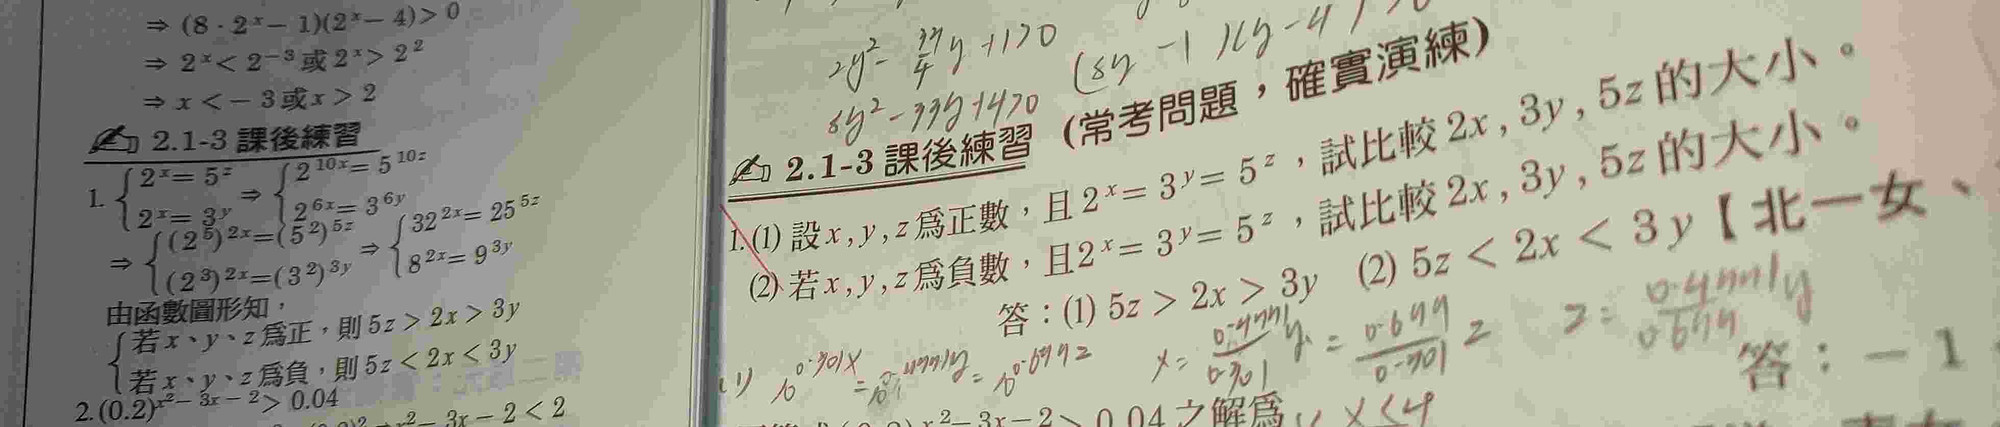 ⇒ (8 · 2ˣ − 1)(2ˣ − 4) > 0
⇒ 2ˣ < 2⁻³ 或 2ˣ > 2²
⇒ x < − 3 或 x > 2
2.1-3 課後練習
1. { 2ˣ = 5ᶻ ⇒ { 2¹⁰ˣ = 5¹⁰ᶻ
2ˣ = 3ʸ 2⁶ˣ = 3⁶ʸ
⇒ { (2⁵)²ˣ = (5²)⁵ᶻ ⇒ { 32²ˣ = 25⁵ᶻ
(2³)²ˣ = (3²)³ʸ 8²ˣ = 9³ʸ
由函數圖形知，
{ 若 x、y、z 爲正，則 5z > 2x > 3y
若 x、y、z 爲負，則 5z < 2x < 3y
2. (0.2)^(x² − 3x − 2) > 0.04
x² − 3x − 2 < 2
2y² − 33/4 y + 1 > 0
(8y − 1)(y − 4) > 0
8y² − 33y + 4 > 0
2.1-3 課後練習 (常考問題，確實演練)
1. (1) 設 x , y , z 爲正數，且 2ˣ = 3ʸ = 5ᶻ，試比較 2x , 3y , 5z 的大小。
(2) 若 x , y , z 爲負數，且 2ˣ = 3ʸ = 5ᶻ，試比較 2x , 3y , 5z 的大小。
答：(1) 5z > 2x > 3y (2) 5z < 2x < 3y【北一女、
(1) 10^0.301x = 10^0.4771y = 10^0.699z x = 0.4771/0.301 y = 0.699/0.301 z z = 0.4771y/0.699
答：− 1
x² − 3x − 2 > 0.04 之解爲
x < 4